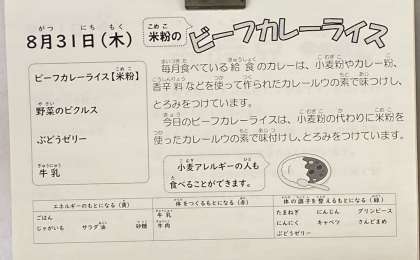 8月31日(木) 米粉のビーフカレーライス
ビーフカレーライス【米粉】
野菜のピクルス
ぶどうゼリー
牛乳
毎月食べている給食のカレーは、小麦粉やカレー粉、
香辛料などを使って作られたカレールウの素で味つけし、
とろみをつけています。
今日のビーフカレーライスは、小麦粉の代わりに米粉を
使ったカレールウの素で味付けし、とろみをつけています。
小麦アレルギーの人も
食べることができます。
エネルギーのもとになる(黄) 体をつくるもとになる(赤) 体の調子を整えるもとになる(緑)
ごはん 牛乳 たまねぎ にんじん グリンピース
じゃがいも サラダ油 砂糖 牛肉 にんにく キャベツ さんどまめ
ぶどうゼリー